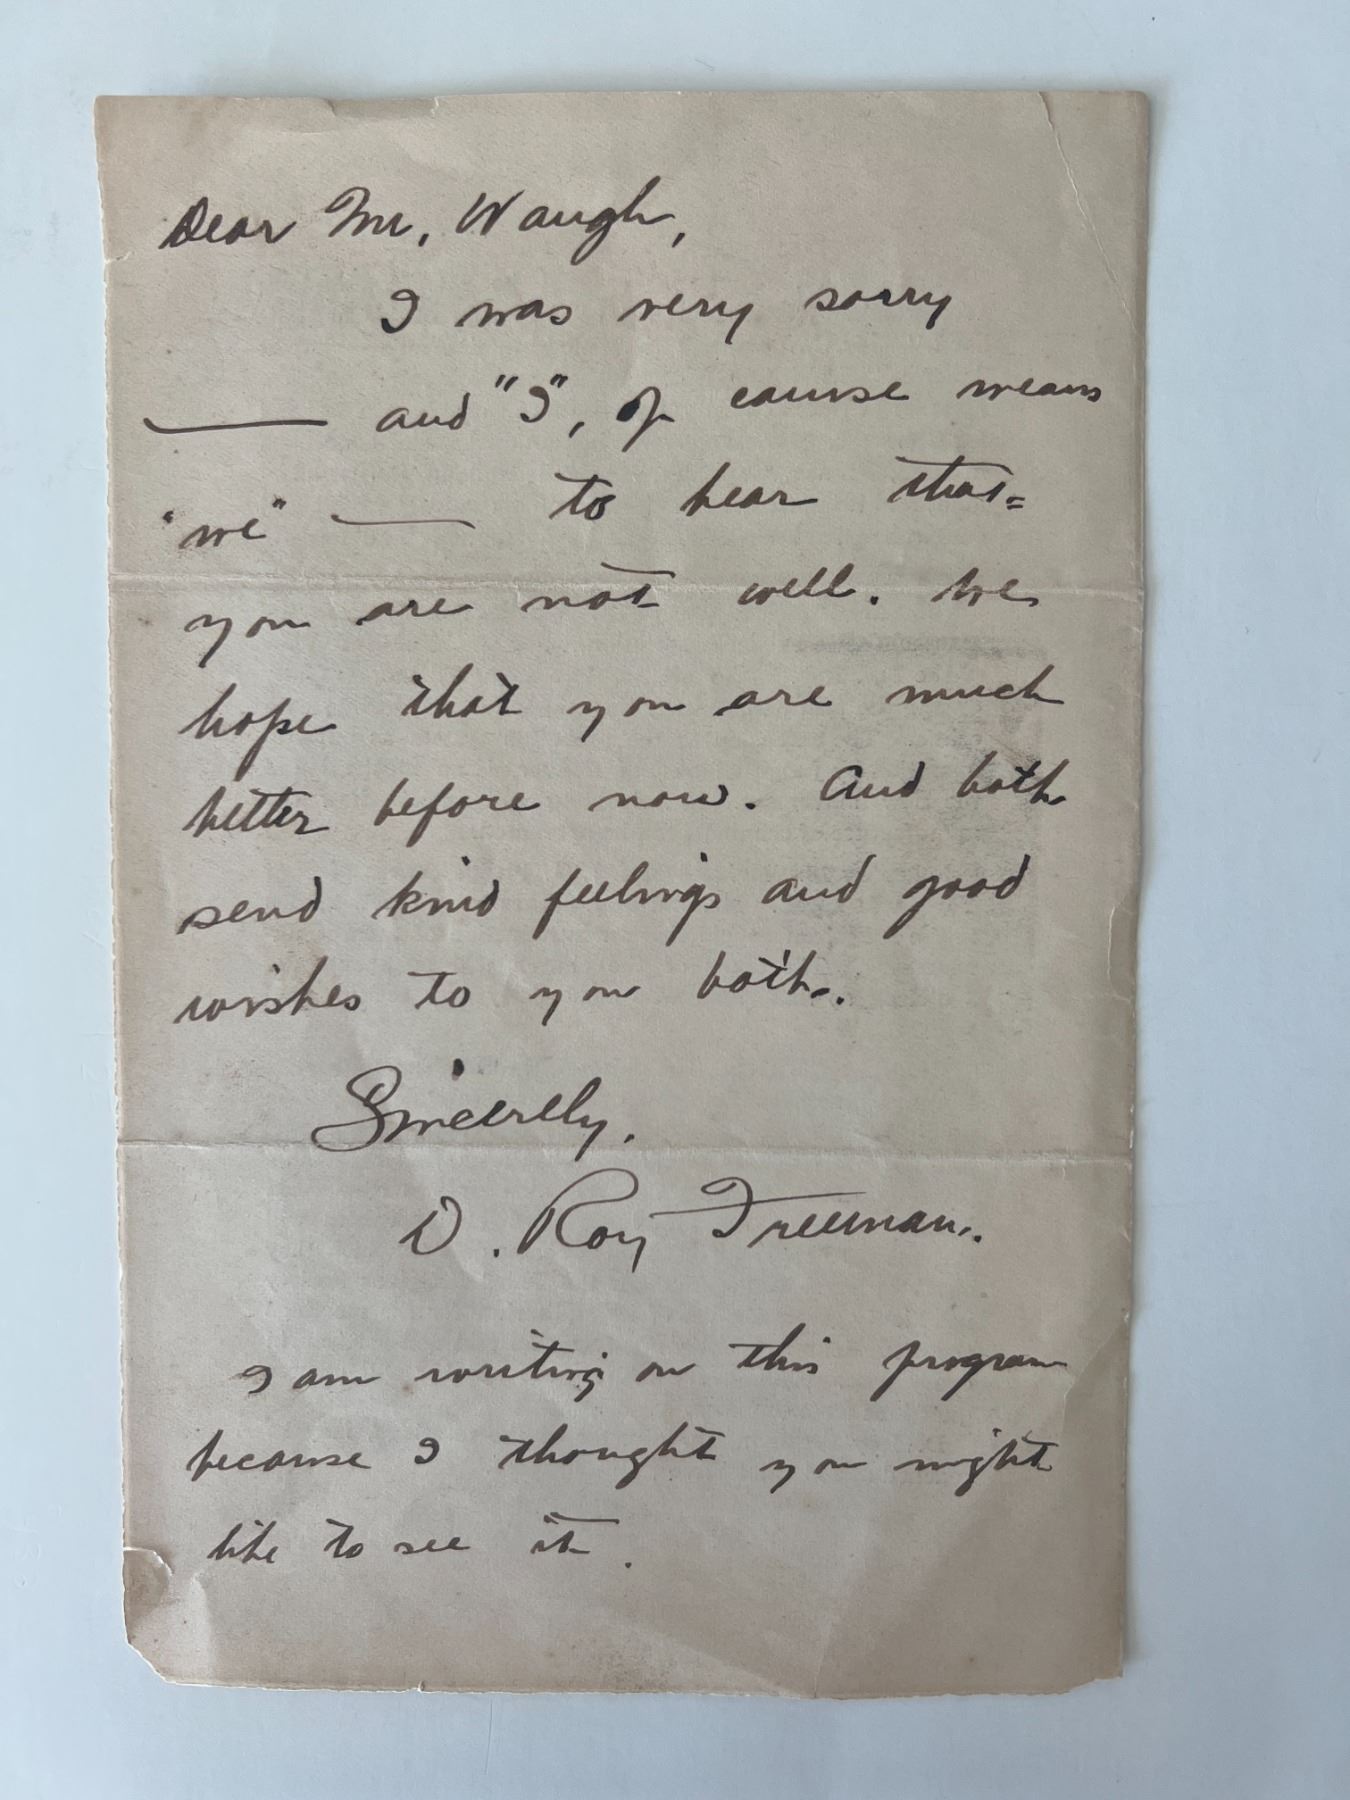 Dear Mr. Waugh,
I was very sorry
— and "I", of course means
"we" — to hear that
you are not well. We
hope that you are much
better before now. And both
send kind feelings and good
wishes to you both.
Sincerely,
D. Roy Freeman.
I am writing on this program
because I thought you might
like to see it.